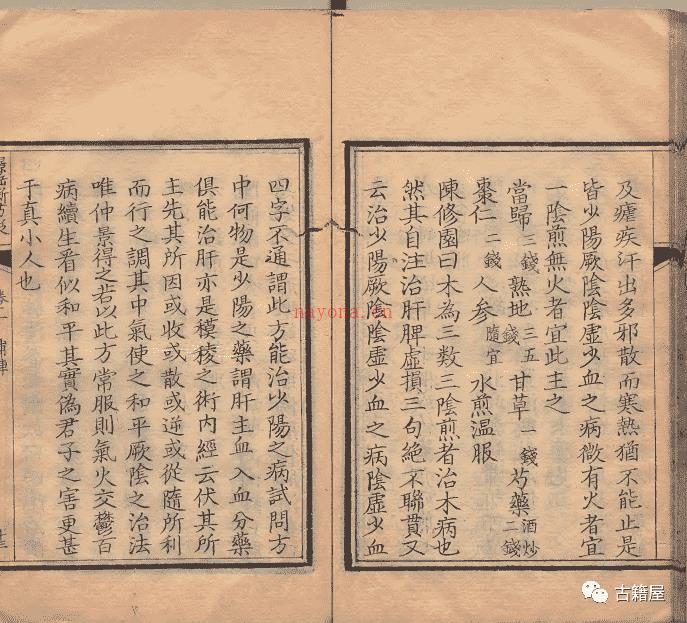 及瘧疾汗出多邪散而寒熱猶不能止是
皆少陽厥陰陰虛少血之病微有火者宜
一陰煎無火者宜此主之
當歸三錢 熟地三五錢 甘草一錢 芍藥酒炒二錢
棗仁二錢 人参隨宜 水煎温服
陳修園曰木為三数三陰煎者治木病也
然其自注治肝脾虛損三句絶不聯貫又
云治少陽厥陰陰虛少血之病陰虛少血
四字不通謂此方能治少陽之病試問方
中何物是少陽之藥謂肝主血入血分藥
俱能治肝亦是模稜之術内經云伏其所
主先其所因或收或散或逆或從隨所利
而行之調其中氣使之和平厥陰之治法
唯仲景得之若以此方常服則氣火交鬱百
病續生看似和平其實偽君子之害更甚
于真小人也
卷二
補陣
nayona.cn
古籍屋